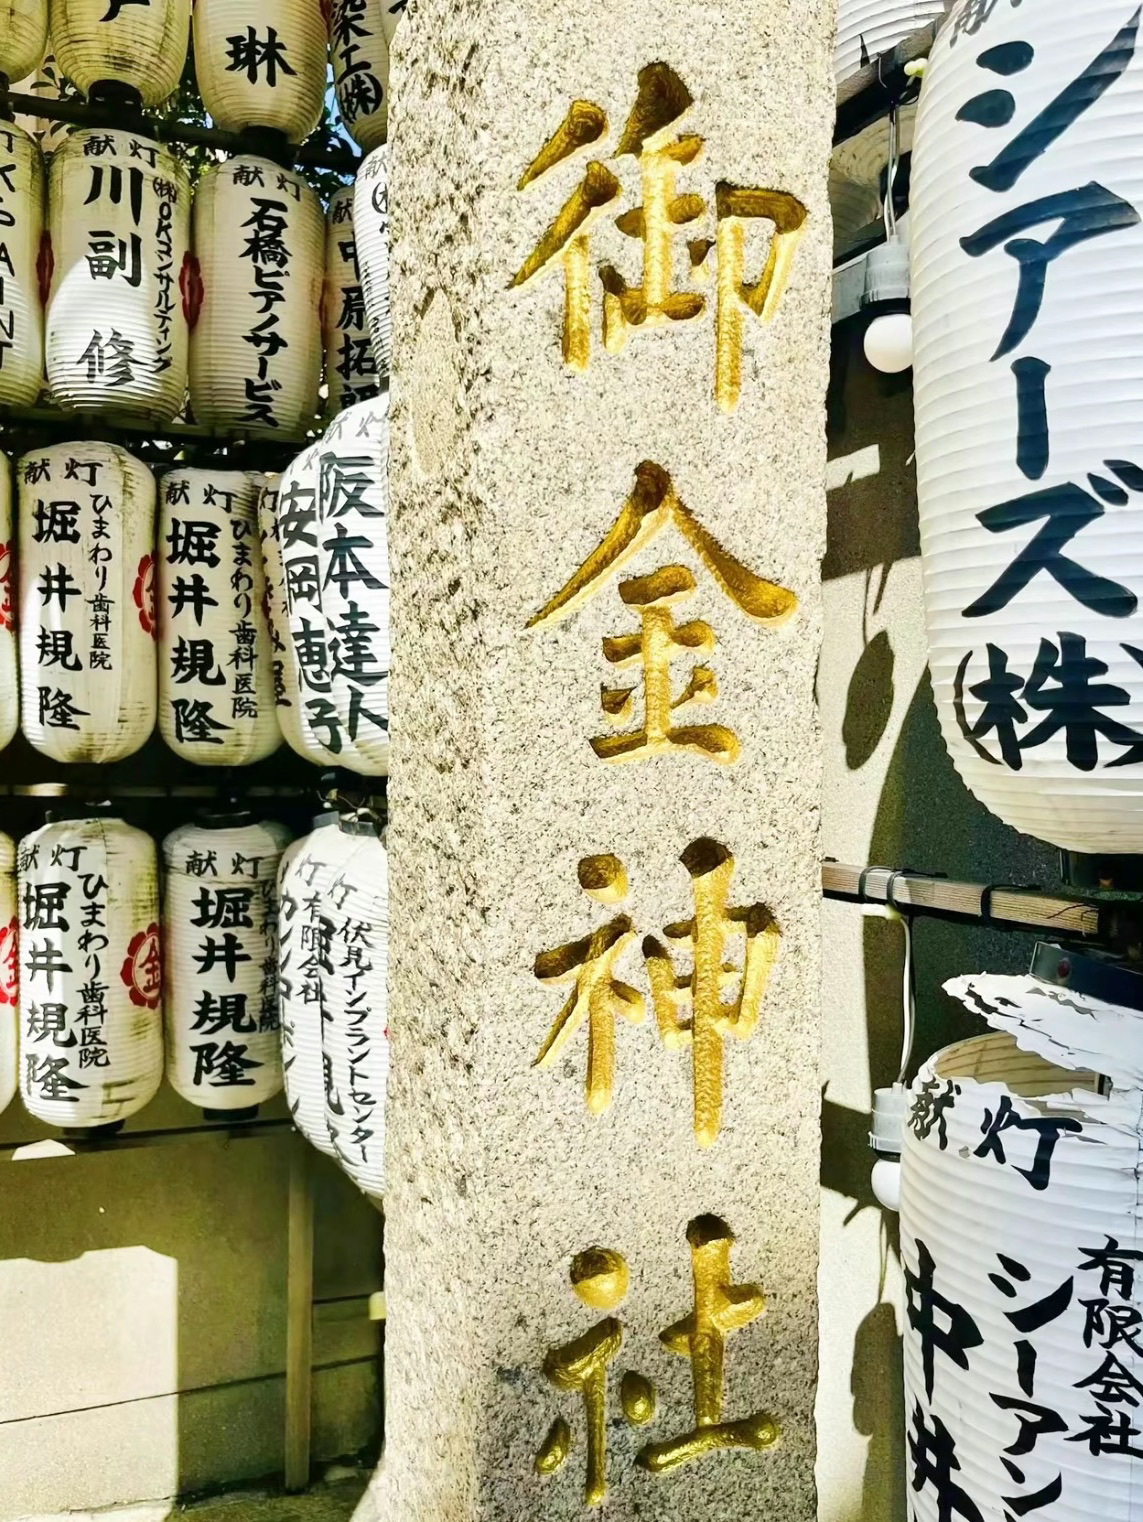 御金神社
琳
染工(株)
献灯
川副 修
(株)OKコンサルティング
献灯
石橋ピアノサービス
献灯
堀井規隆
ひまわり歯科医院
献灯
堀井規隆
ひまわり歯科医院
阪本達人
安岡恵子
献灯
堀井規隆
ひまわり歯科医院
金
献灯
堀井規隆
ひまわり歯科医院
灯
有限会社
伏見インプラントセンター
献
シアーズ(株)
献灯
中井
シーアン
有限会社